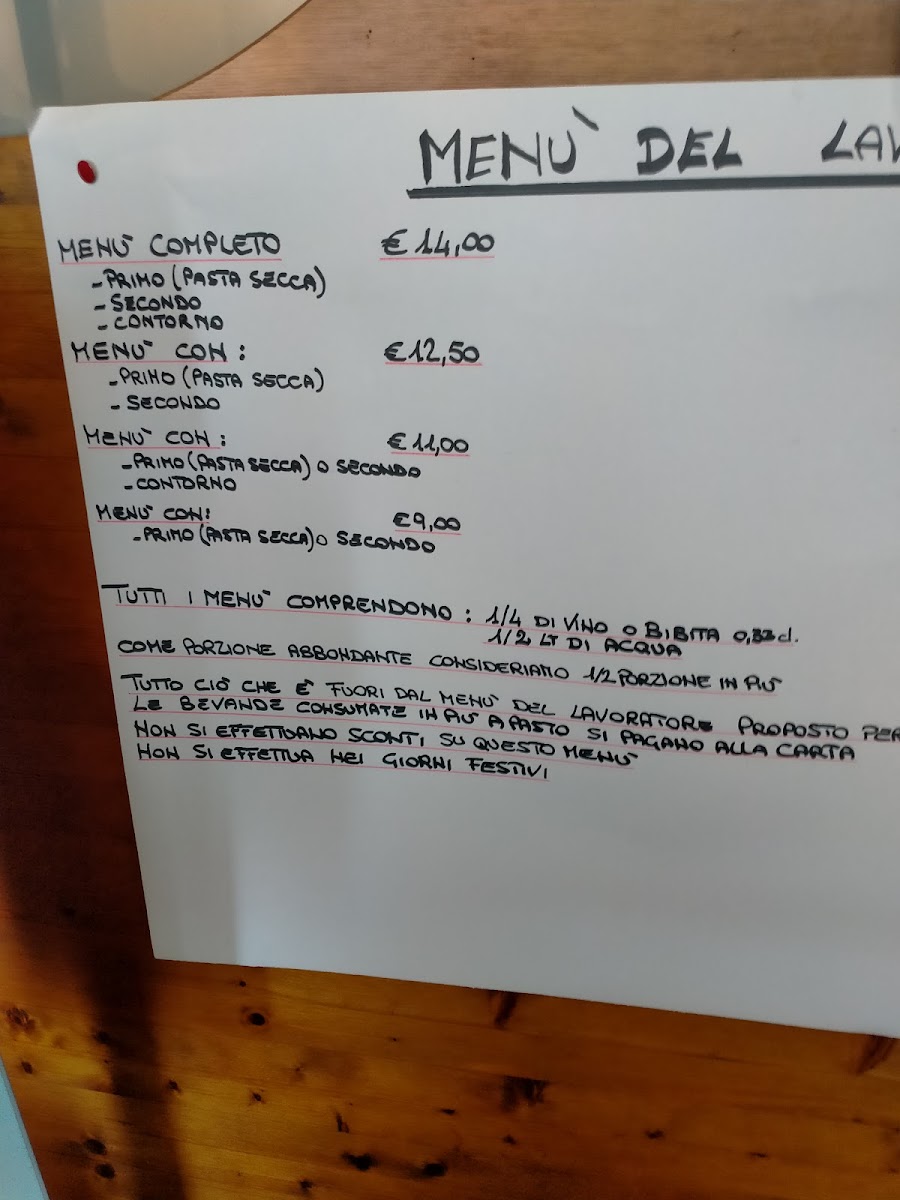 MENÙ DEL LAV
MENÙ COMPLETO € 14,00
- PRIMO (PASTA SECCA)
- SECONDO
- CONTORNO
MENÙ CON: € 12,50
- PRIMO (PASTA SECCA)
- SECONDO
MENÙ CON: € 11,00
- PRIMO (PASTA SECCA) O SECONDO
- CONTORNO
MENÙ CON: € 9,00
- PRIMO (PASTA SECCA) O SECONDO
TUTTI I MENÙ COMPRENDONO: 1/4 DI VINO O BIBITA 0,33 cl.
1/2 LT DI ACQUA
COME PORZIONE ABBONDANTE CONSIDERIAMO 1/2 PORZIONE IN PIÙ
TUTTO CIÒ CHE È FUORI DAL MENÙ DEL LAVORATORE PROPOSTO PER
LE BEVANDE CONSUMATE IN PIÙ A PASTO SI PAGANO ALLA CARTA
NON SI EFFETTUANO SCONTI SU QUESTO MENÙ
NON SI EFFETTUA NEI GIORNI FESTIVI